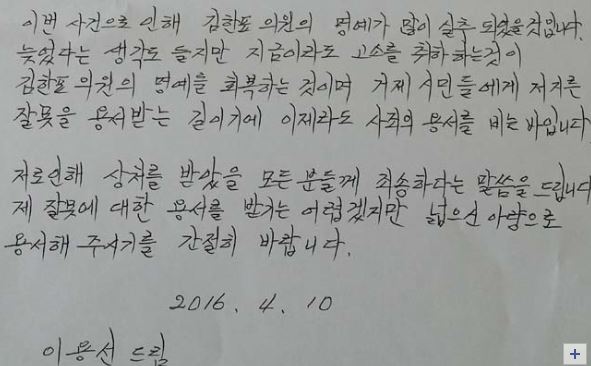 이번 사건으로 인해 김한표 의원의 명예가 많이 실추 되었을것입니다.
늦었다는 생각도 들지만 지금이라도 고소를 취하 하는것이
김한표 의원의 명예을 회복하는 것이며 거제 시민들에게 저지른
잘못을 용서받는 길이기에 이제라도 사죄의 용서를 비는 바입니다
저로인해 상처를 받았을 모든 분들께 죄송하다는 말씀을 드립니다
제 잘못에 대한 용서를 받기는 어렵겠지만 넓으신 아량으로
용서해 주시기를 간절히 바랍니다.
2016. 4. 10
이용선 드림